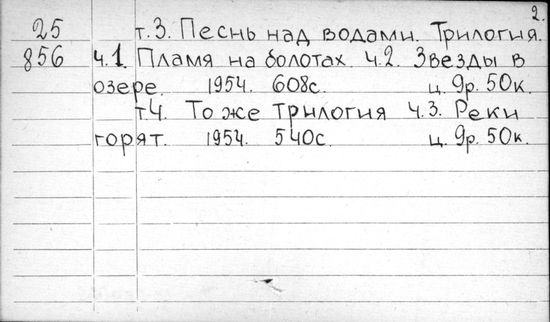 2.
25 т.3. Песнь над водами. Трилогия.
856 ч.1. Пламя на болотах. ч.2. Звезды в
озере. 1954. 608с. ц. 9р. 50к.
т.4. То же трилогия ч.3. Реки
горят. 1954. 540с. ц. 9р. 50к.